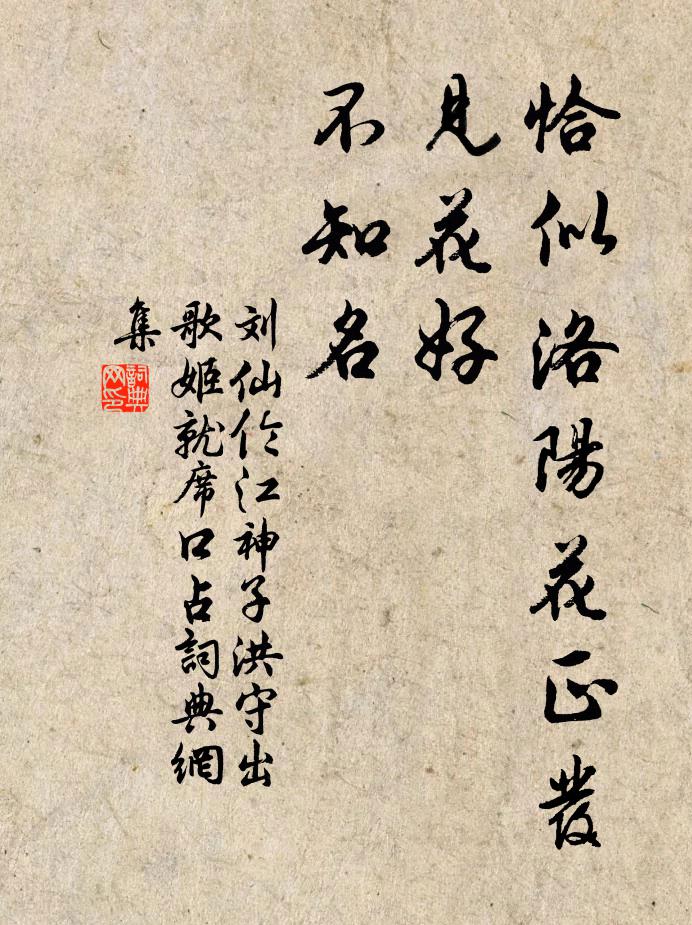 恰似洛陽花正發
見花好
不知名
刘仙伦江神子洪守出
歌姬就席口占詞典網
集
詞典
网印